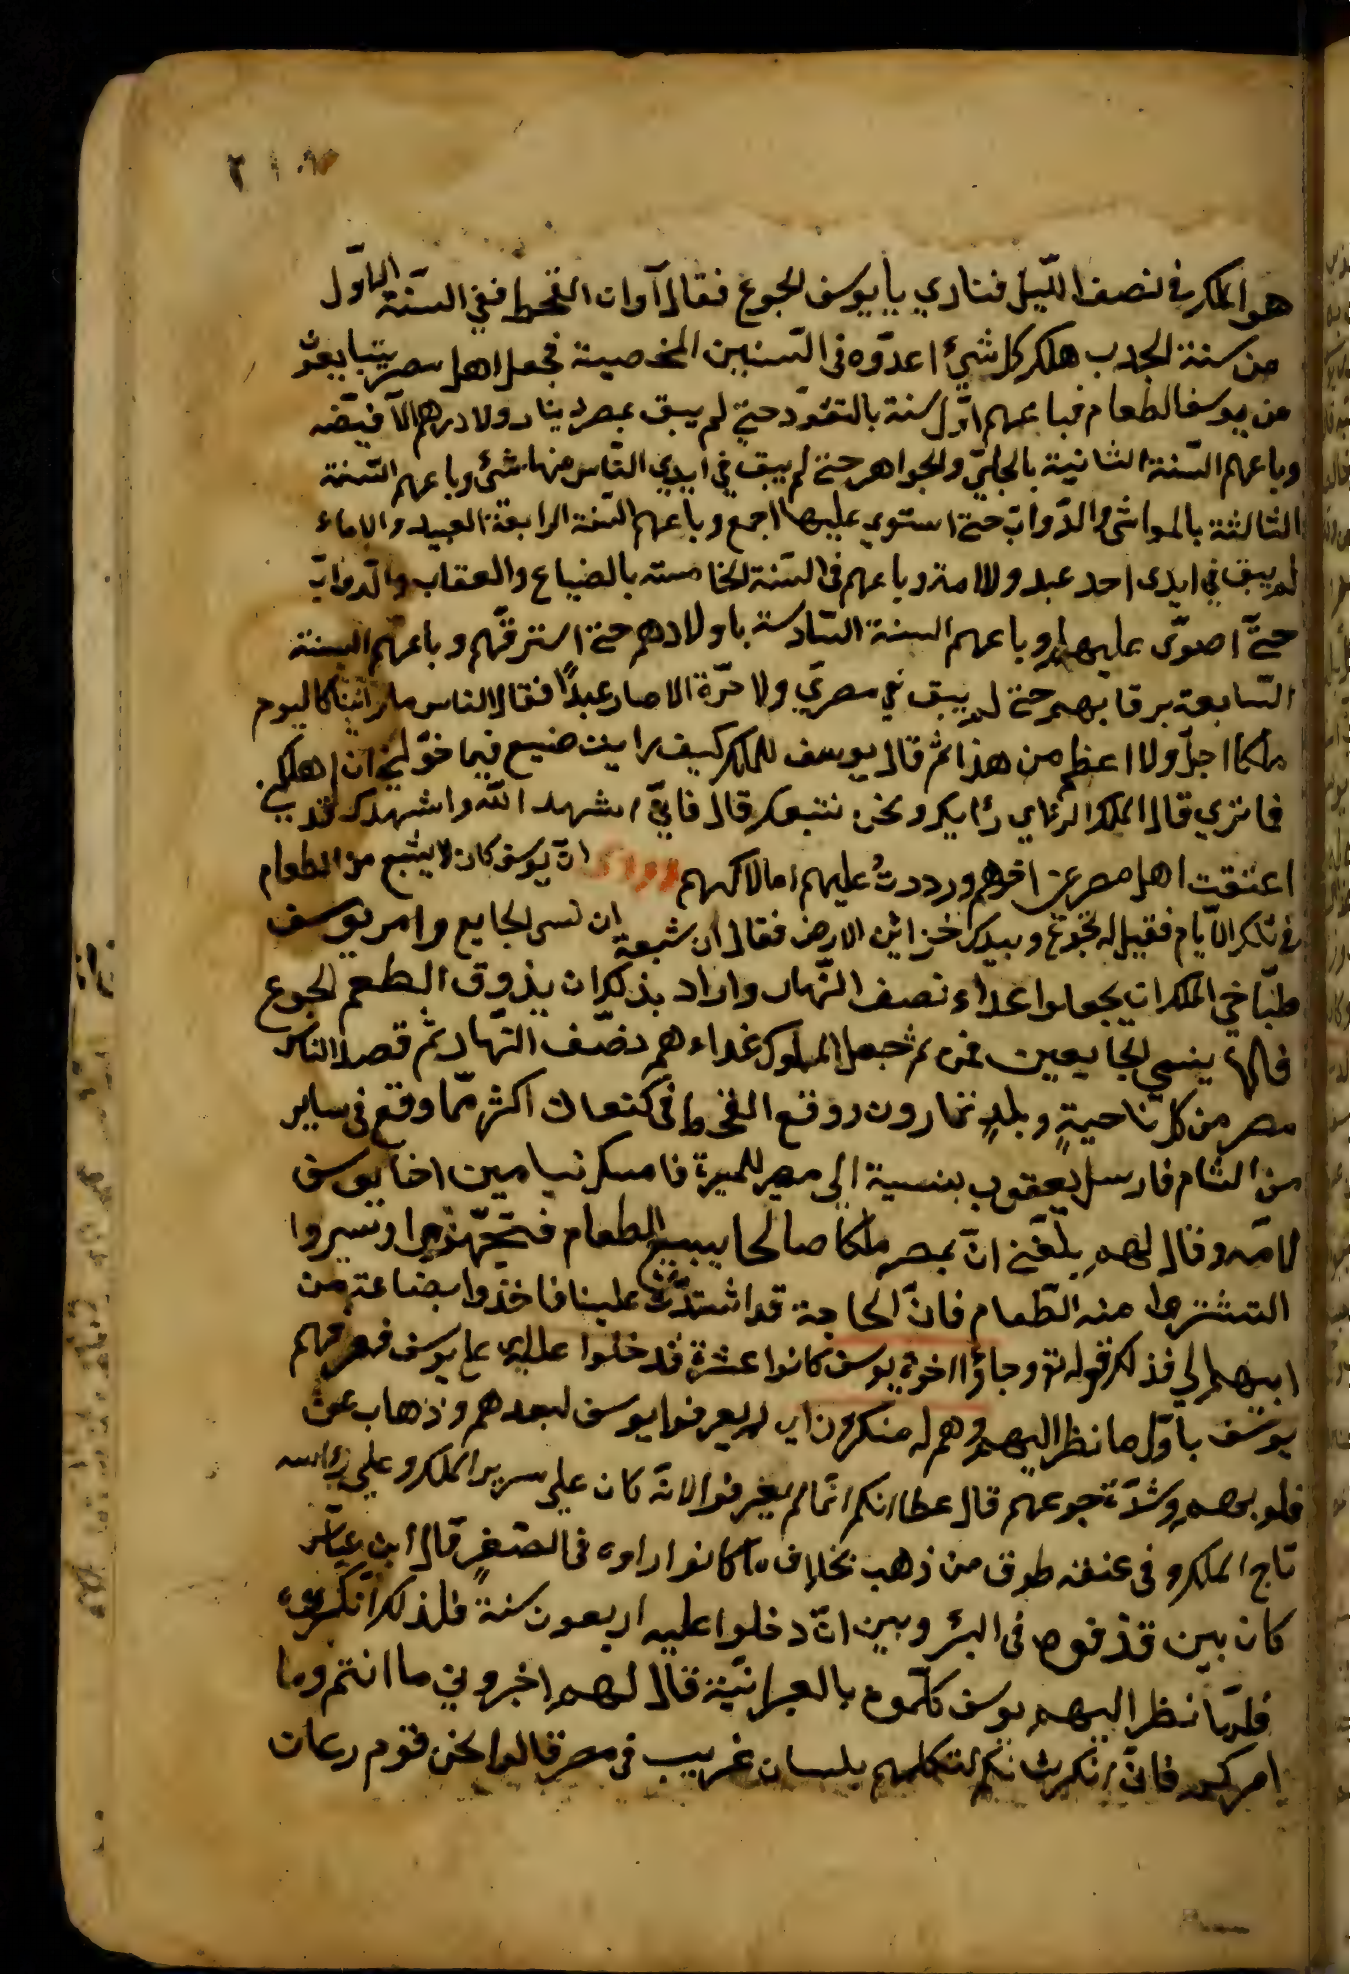 هو الملك في نصف الليل فنادي يا يوسف الجوع فقال آوان القحط ففي السنة الاول
من سنة الجدب هلك كل شيئ اعدّوه في السنين المخصبة فجعل اهل مصر يتبايعون
من يوسف الطعام فباعهم اول سنة بالنقود حتي لم يبق بمصر دينار ولا درهم الا قبضه
وباعهم السنة الثانية بالحليّ والجواهر حتي لم يبق في ايدي الناس منها شئ وباعهم السنة
الثالثة بالمواشي والدوابّ حتي استوي عليها اجمع وباعهم السنة الرابعة العبيد والاماء
لم يبق في ايدي احد عبد ولا امة وباعهم في السنة الخامسة بالضياع والعقاب والدوابّ
حتّي اصوّى عليها وباعهم السنة السادسة باولادهم حتي استرقّهم وباعهم السنة
السابعة برقابهم حتي لم يبق في مصر حرّ ولا حرّة الا صار عبدًا فقال الناس ما رأينا كاليوم
ملكا اجلّ ولا اعظم من هذا ثم قال يوسف للملك كيف رايت صنيع فيما خوّلني ان اهلكني
فما تري قال الملك الرأي رأيك ونحن نتبعك قال فاني اشهد الله واشهدك قد
اعتقت اهل مصر عن اخرهم ورددتُ عليهم املاكهم وروى انّ يوسف كان لا يشبع من الطعام
في تلك الايام فقيل له تجوع وبيدك خزائن الارض فقال ان شبعت ان نسي الجايع وامر يوسف
طبّاخي الملك ان يجعلوا غداء نصف النّهار واراد بذلك ان يذوق الطعم الجوع
فلا ينسي الجايعين فمن ثم جعل الملوك غداءهم نصف النهار ثم قصد الناس
مصر من كل ناحيةٍ وبلدٍ تمارون ووقع القحط في كنعان اكثر ممّا وقع في ساير
من الشام فارسل يعقوب بنسية الي مصر للميرة فامسك نبيامين اخا يوسف
لامّه وقال لهم بلغني انّ بمصر ملكا صالحا يبيع الطعام فتجهّزوا وسيروا
التشتروا منه الطّعام فانّ الحاجة قد اشتدّت علينا فاخذوا بضاعته من
ابيهم لي فذلك قوله تع وجاؤا اخوة يوسف كانوا عشرة فدخلوا عليه اي علي يوسف فعرفهم
يوسف باوّل ما نظر اليهم وهم له منكرون اي لم يعرفوا يوسف لبعدهم وذهاب عن
قلوبهم وشدّة جوعهم قال عطا انكم انما لم يعرفوا لانّه كان علي سرير الملك وعلي رأسه
تاج الملك وفي عنقه طوق من ذهب بخلاف ما كانوا راوه في الصغر قال ابن عباس
كان بين قذفوه في البئر وبين انّ دخلوا عليه اربعون سنة فلذلك انكروه
فلمّا نظر اليهم يوسف كلّموه بالعبرانيّة قال لهم اخبروني ما انتم وما
امركم فانّ انكرت شانكم لتكلمهم بلسان غريب في مصر قالوا نحن قوم رعات